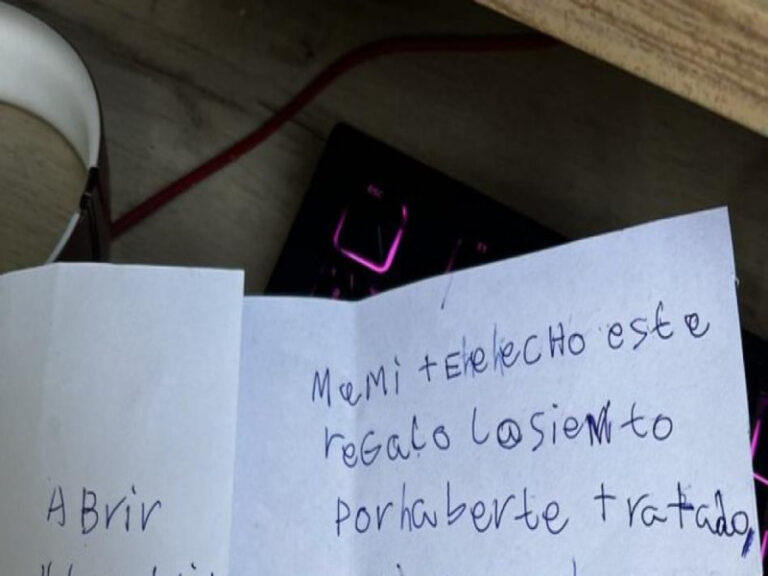 ABrir
MaMi tEhehecHo este
reGalo LosieNto
Porhaberte tratado,